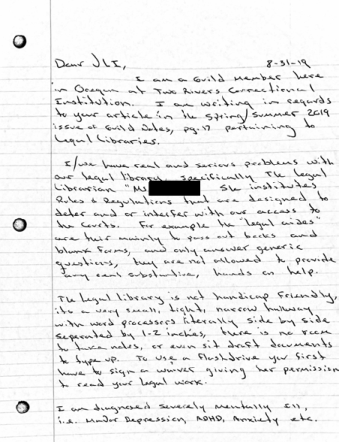 Dear JLI, 8-31-19
I am a Guild member here
in Oregon at Two Rivers Correctional
Institution. I am writing in regards
to your article in the Spring/Summer 2019
issue of Guild Notes, pg. 17 pertaining to
Legal Libraries.
I/we have real and serious problems with
our legal library. Specifically The legal
Librarian "Ms She institutes
Rules & Regulations that are designed to
deter and or interfer with our access to
the Courts. For example the "legal aides"
are their mainly to pass out books and
blank forms, and only answer generic
questions, they are not allowed to provide
any real substantive, hands on help.
The legal library is not handicap friendly,
its a very small, tight, narrow hallway
with word processers literally side by side
seperated by 1-2 inches, there is no room
to take notes, or even sit draft documents
to type up. To use a flashdrive you first
have to sign a waiver giving her permission
to read your legal work.
I am diagnosed severely mentally ill,
i.e. Major Depression, ADHD, Anxiety etc.